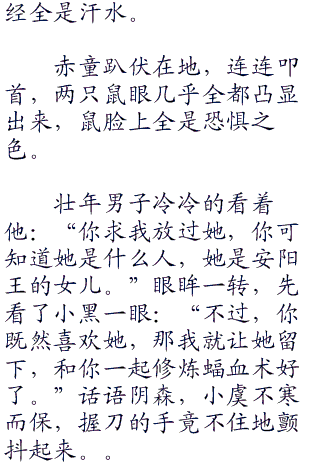 经全是汗水。
赤童趴伏在地，连连叩
首，两只鼠眼几乎全都凸显
出来，鼠脸上全是恐惧之
色。
壮年男子冷冷的看着
他：“你求我放过她，你可
知道她是什么人，她是安阳
王的女儿。”眼眸一转，先
看了小黑一眼：“不过，你
既然喜欢她，那我就让她留
下，和你一起修炼蝠血术好
了。”话语阴森，小虞不寒
而保，握刀的手竟不住地颤
抖起来。。